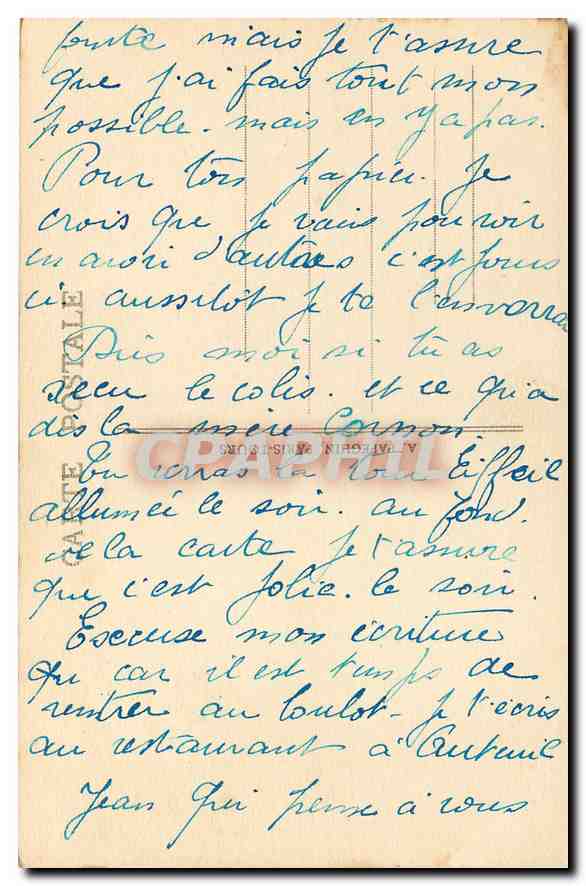 mais je t'assure
que j'ai fais tout mon
possible. mais en y a pas.
Pour tois papier. je
crois que je vais pouvoir
en avoir d'autres c'est jours
ci aussilôt je te l'enverrai
Dis moi si tu as
recu le colis. et ce qu'a
dis la mère
Tu verras la tour Eiffeil
allumeé le soir. au fond.
de la carte je t'assure
que c'est jolie. le soir.
Escuse mon écriture
qui car il est temps de
rentrer au boulot - je t'écris
au restaurant à Auteuil
Jean qui pense à vous
CARTE POSTALE
A. PAPEGHIN PARIS-TOURS
CPAPHIL